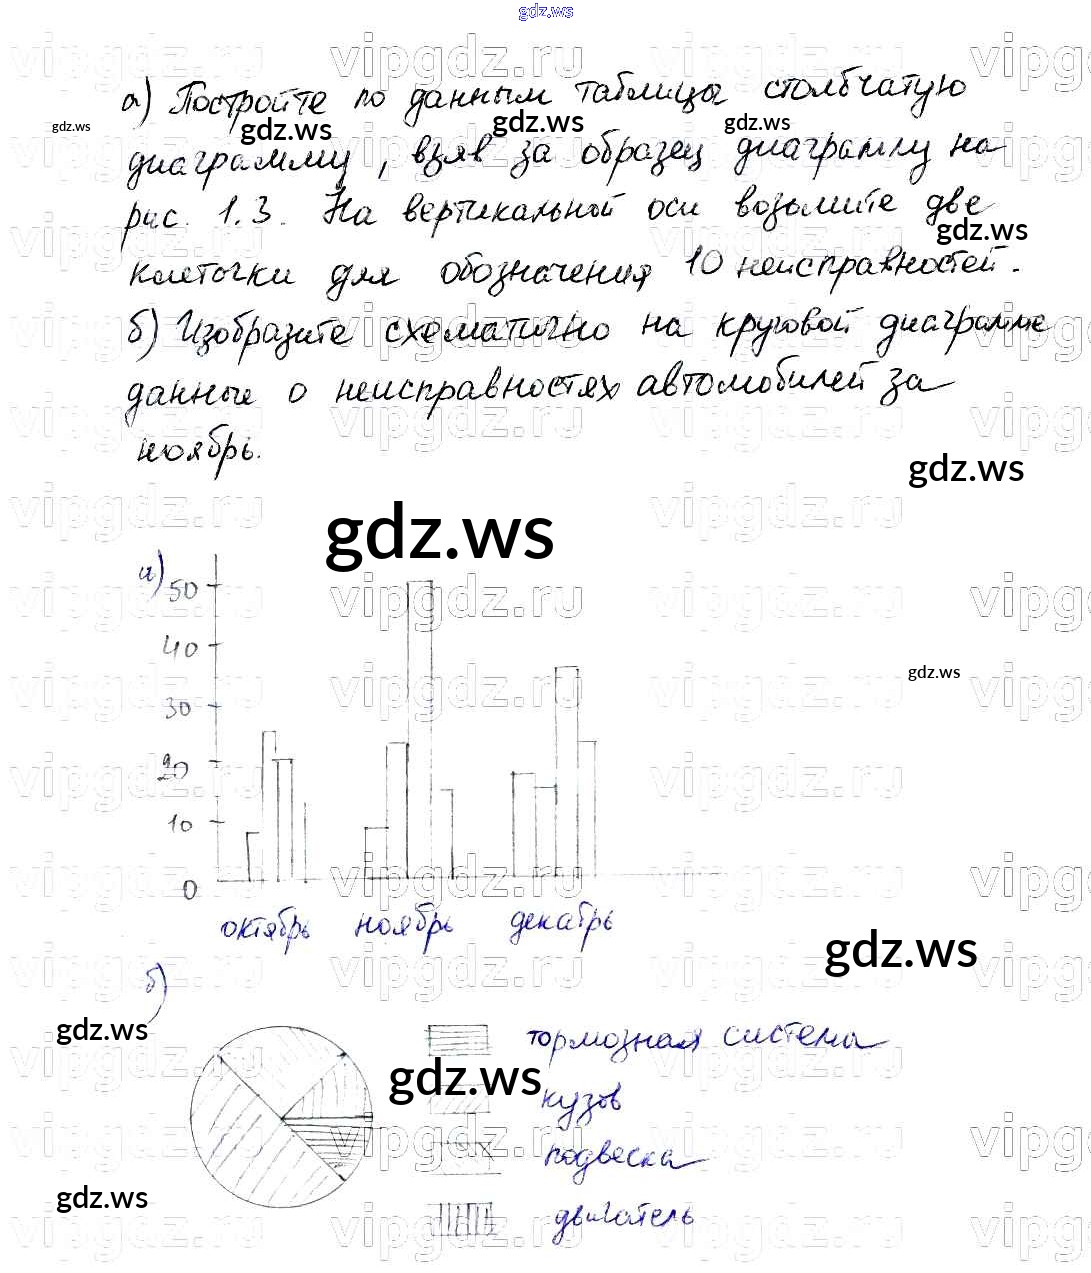 gdz.ws
а) Постройте по данным таблицы столбчатую
диаграмму, взяв за образец диаграмму на
рис. 1.3. На вертикальной оси возьмите две
клеточки для обозначения 10 неисправностей.
б) Изобразите схематично на круговой диаграмме
данные о неисправностях автомобилей за
ноябрь.
gdz.ws
gdz.ws
а)
50
40
30
20
10
0
октябрь ноябрь декабрь
gdz.ws
б)
gdz.ws
тормозная система
gdz.ws
кузов
подвеска
gdz.ws
двигатель
vipgdz.ru